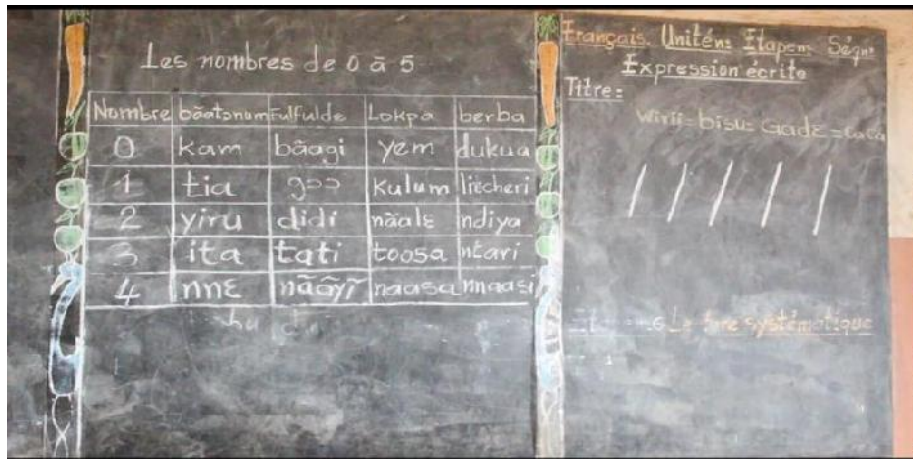 Les nombres de 0 ā 5
Nombre bāatɔnum Fulfulde Lokpa berba
0 kam bāagi yem dukua
1 tia gɔɔ kulum liɛcheri
2 yiru didi nāalɛ ndiya
3 ita tati toosa ntari
4 nnɛ nāāyĩ naasa nnaasi
Français. Unité n: Etape n: Séqn:
Expression écrite
Titre:
wirii=bisu= Gadɛ=
Le systématique